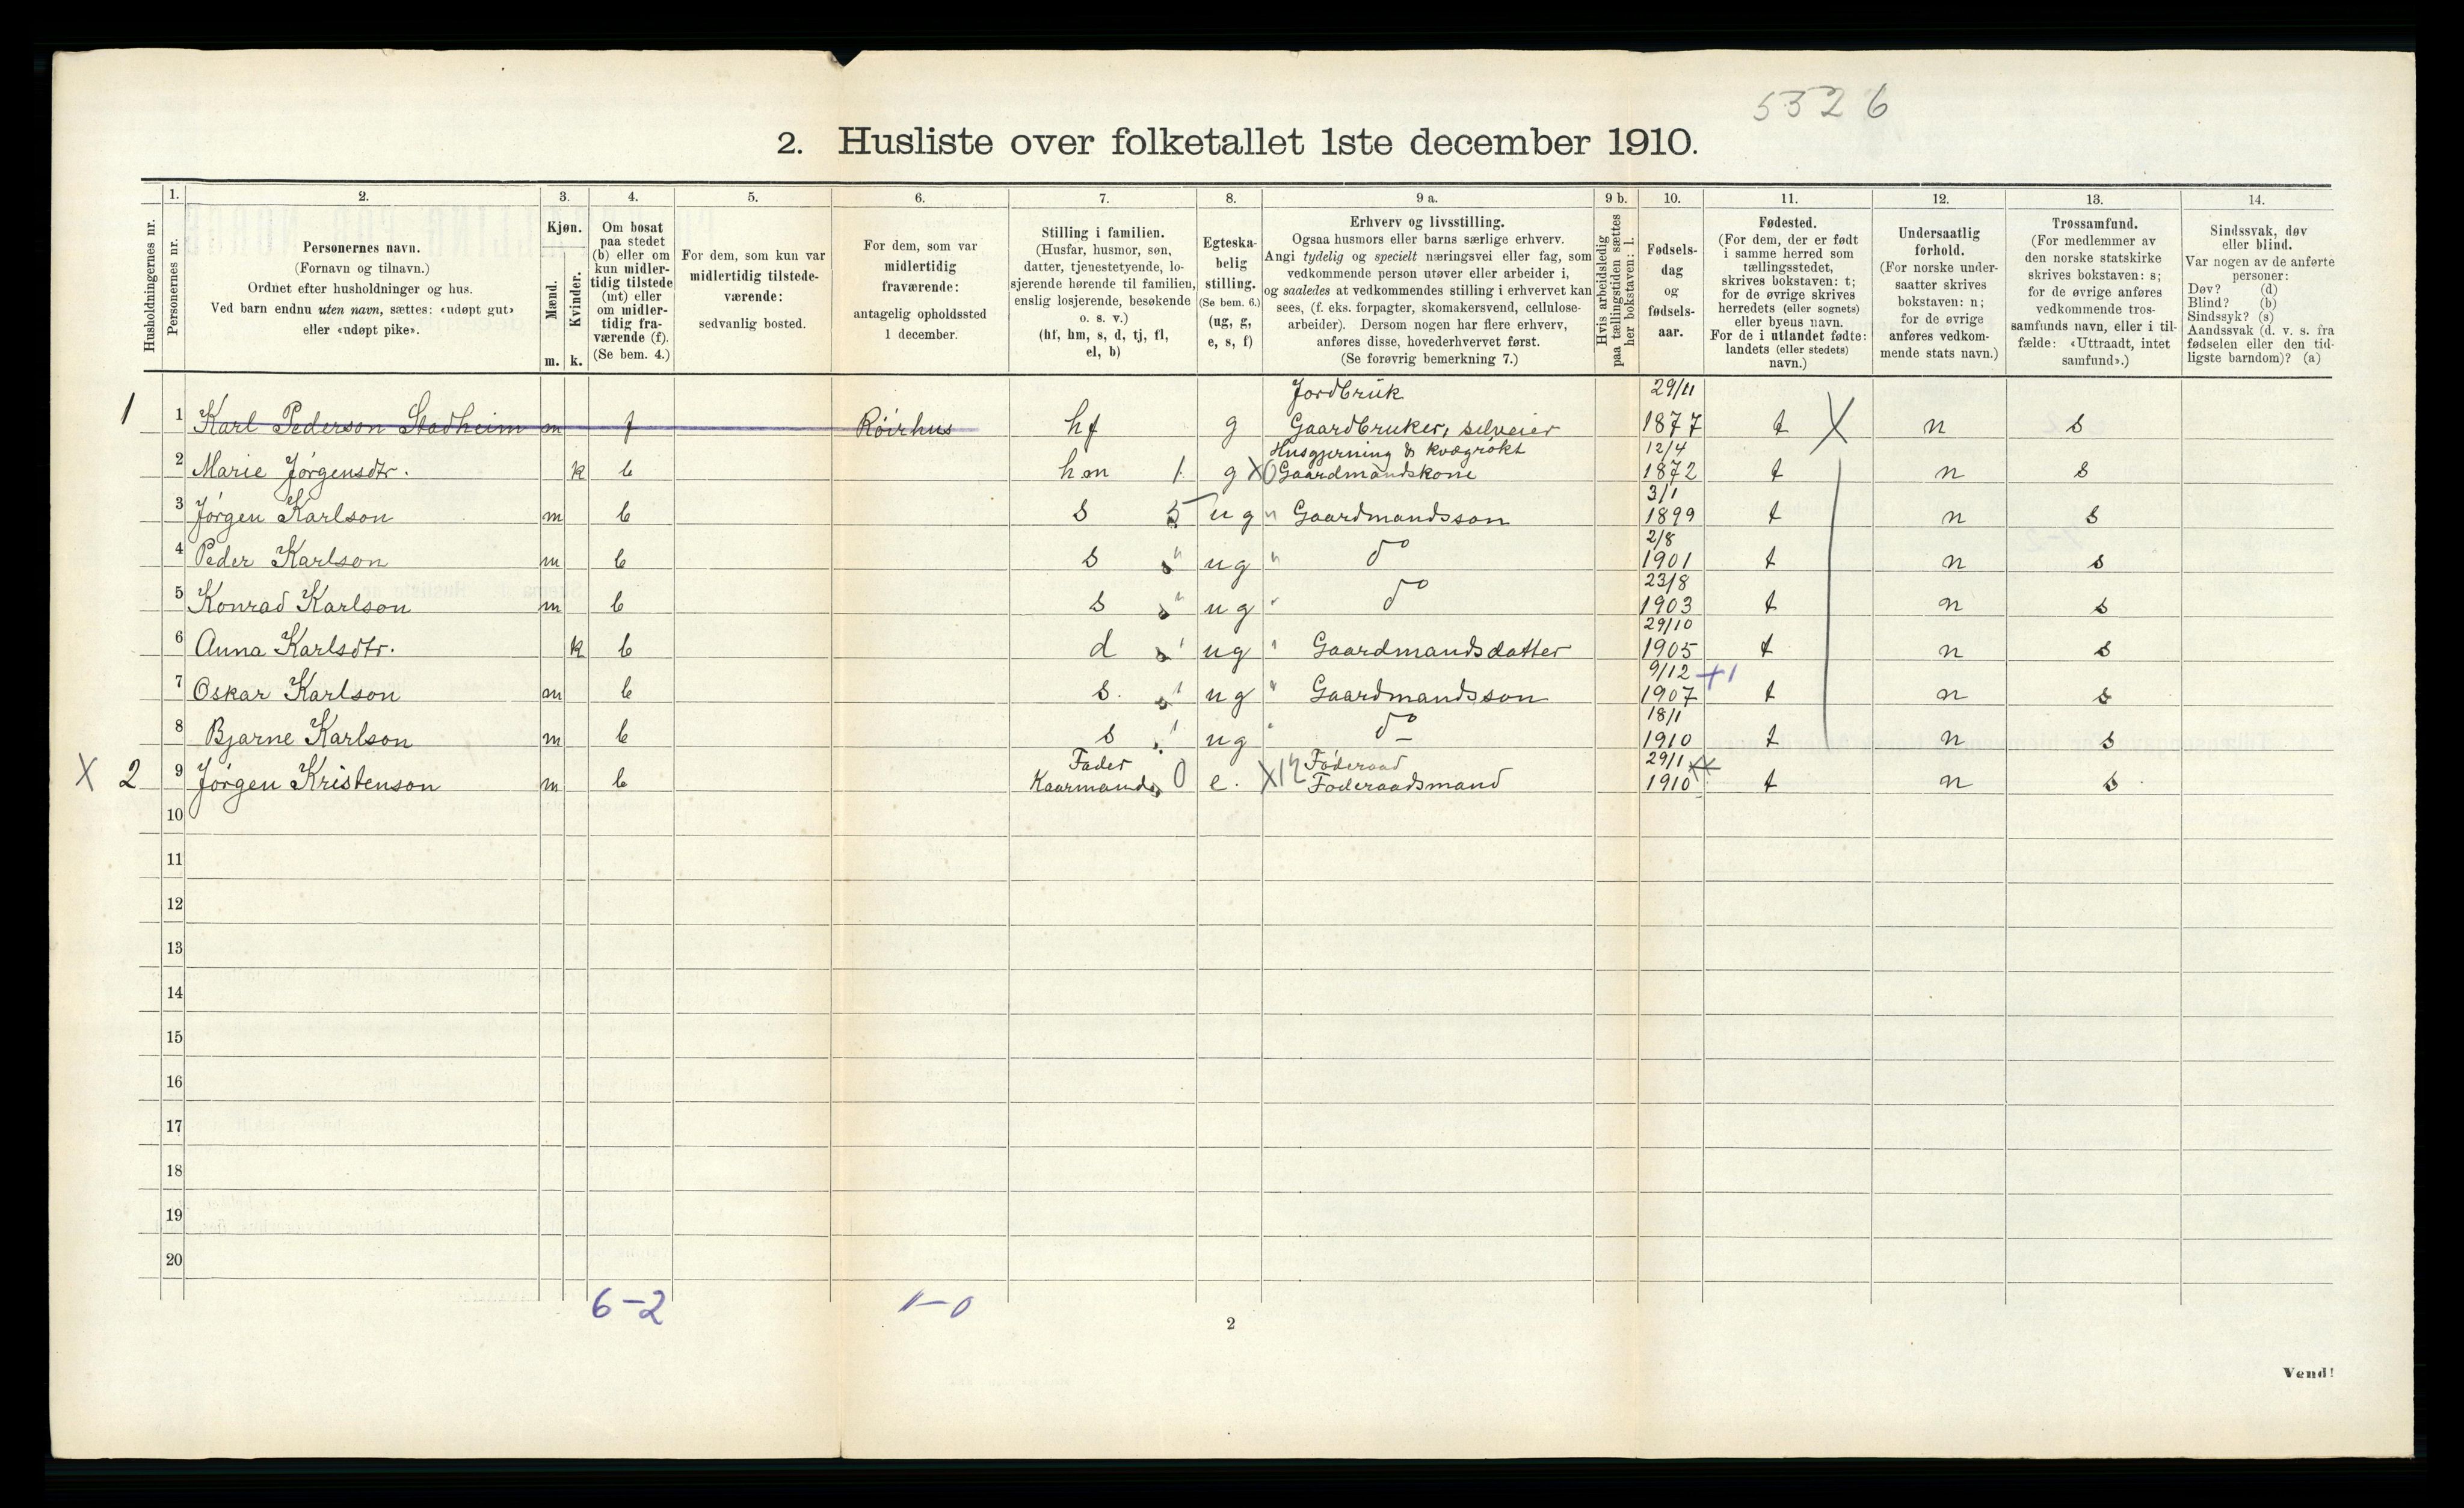 5326
2. Husliste over folketallet 1ste december 1910.
Husholdningernes nr.
1.
Personernes nr.
2.
Personernes navn.
(Fornavn og tilnavn.)
Ordnet efter husholdninger og hus.
Ved barn endnu uten navn, sættes: «udøpt gut»
eller «udøpt pike».
3.
Kjøn.
Mænd.
Kvinder.
m. k.
4.
Om bosat
paa stedet
(b) eller om
kun midler-
tidig tilstede
(mt) eller
om midler-
tidig fra-
værende (f).
(Se bem. 4.)
5.
For dem, som kun var
midlertidig tilstede-
værende:
sedvanlig bosted.
6.
For dem, som var
midlertidig
fraværende:
antagelig opholdssted
1 december.
7.
Stilling i familien.
(Husfar, husmor, søn,
datter, tjenestetyende, lo-
sjerende hørende til familien,
enslig losjerende, besøkende
o. s. v.)
(hf, hm, s, d, tj, fl,
el, b)
8.
Egteska-
belig
stilling.
(Se bem. 6.)
(ug, g,
e, s, f)
9 a.
Erhverv og livsstilling.
Ogsaa husmors eller barns særlige erhverv.
Angi tydelig og specielt næringsvei eller fag, som
vedkommende person utøver eller arbeider i,
og saaledes at vedkommendes stilling i erhvervet kan
sees, (f. eks. forpagter, skomakersvend, cellulose-
arbeider). Dersom nogen har flere erhverv,
anføres disse, hovederhvervet først.
(Se forøvrig bemerkning 7.)
9 b.
Hvis arbeidsledig
paa tællingstiden sættes
her bokstaven: l.
10.
Fødsels-
dag
og
fødsels-
aar.
11.
Fødested.
(For dem, der er født
i samme herred som
tællingsstedet,
skrives bokstaven: t;
for de øvrige skrives
herredets (eller sognets)
eller byens navn.
For de i utlandet fødte:
landets (eller stedets)
navn.)
12.
Undersaatlig
forhold.
(For norske under-
saatter skrives
bokstaven: n;
for de øvrige
anføres vedkom-
mende stats navn.)
13.
Trossamfund.
(For medlemmer av
den norske statskirke
skrives bokstaven: s;
for de øvrige anføres
vedkommende tros-
samfunds navn, eller i til-
fælde: «Uttraadt, intet
samfund».)
14.
Sindssvak, døv
eller blind.
Var nogen av de anførte
personer:
Døv? (d)
Blind? (b)
Sindssyk? (s)
Aandssvak (d. v. s. fra
fødselen eller den tid-
ligste barndom)? (a)
Jordbruk 29/11
1 1 Karl Pederson Stadheim m f Röirhus hf g Gaardbruker, selveier 1877 t X n s
Husgjerning & kvægrökt 12/4
2 Marie Jörgensdtr. k b hm 1 g X0 Gaardmandskone 1872 t n s
3/1
3 Jörgen Karlson m b s 5 ug " Gaardmandsson 1899 t n s
2/8
4 Peder Karlson m b s " ug " do 1901 t n s
23/8
5 Konrad Karlson m b s " ug " do 1903 t n s
29/10
6 Anna Karlsdtr. k b d " ug " Gaardmandsdatter 1905 t n s
9/12 +1
7 Oskar Karlson m b s. " ug " Gaardmandsson 1907 t n s
18/1
8 Bjarne Karlson m b s " ug " do 1910 t n s
Fader Föderaad 29/1
X 2 9 Jörgen Kristenson m b Kaarmand 0 e. X12 Föderaadsmand 1910 t n s
10
11
12
13
14
15
16
17
18
19
20
6-2 1-0
2
Vend!